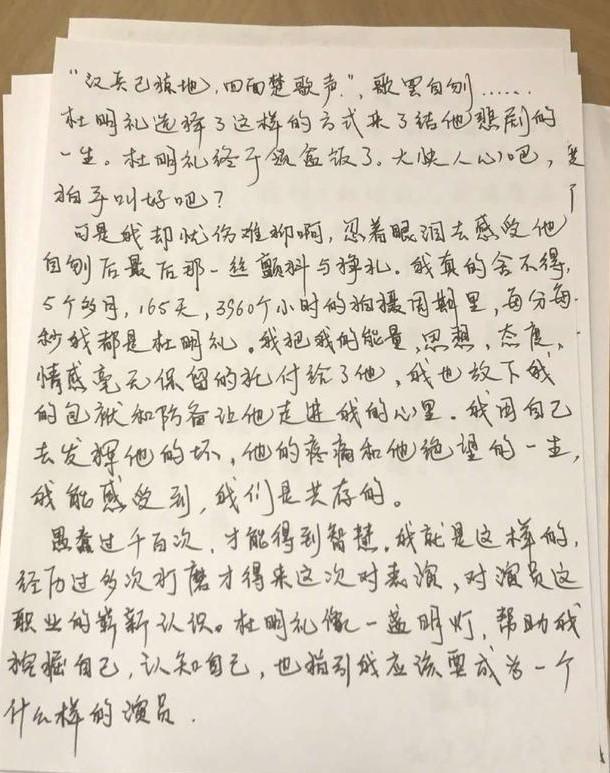 “汉兵已掠地，四面楚歌声”，歌罢自刎……
杜明礼选择了这样的方式来了结他悲剧的
一生。杜明礼终于领盒饭了。大快人心吧，
拍手叫好吧？
可是我却忧伤难抑啊，忍着眼泪去感受他
自刎后最后那一丝颤抖与挣扎。我真的舍不得，
5个多月，165天，3960个小时的拍摄周期里，每分每
秒我都是杜明礼。我把我的能量，思想，态度，
情感毫无保留的托付给了他，我也放下我
的包袱和防备让他走进我的心里。我用自己
去发挥他的坏，他的疼痛和他绝望的一生，
我能感受到，我们是共存的。
愚蠢过千百次，才能得到智慧。我就是这样的，
经历过多次打磨才得来这次对表演，对演员这
职业的崭新认识。杜明礼像一盏明灯，帮助我
挖掘自己，认知自己，也指引我应该要成为一个
什么样的演员.